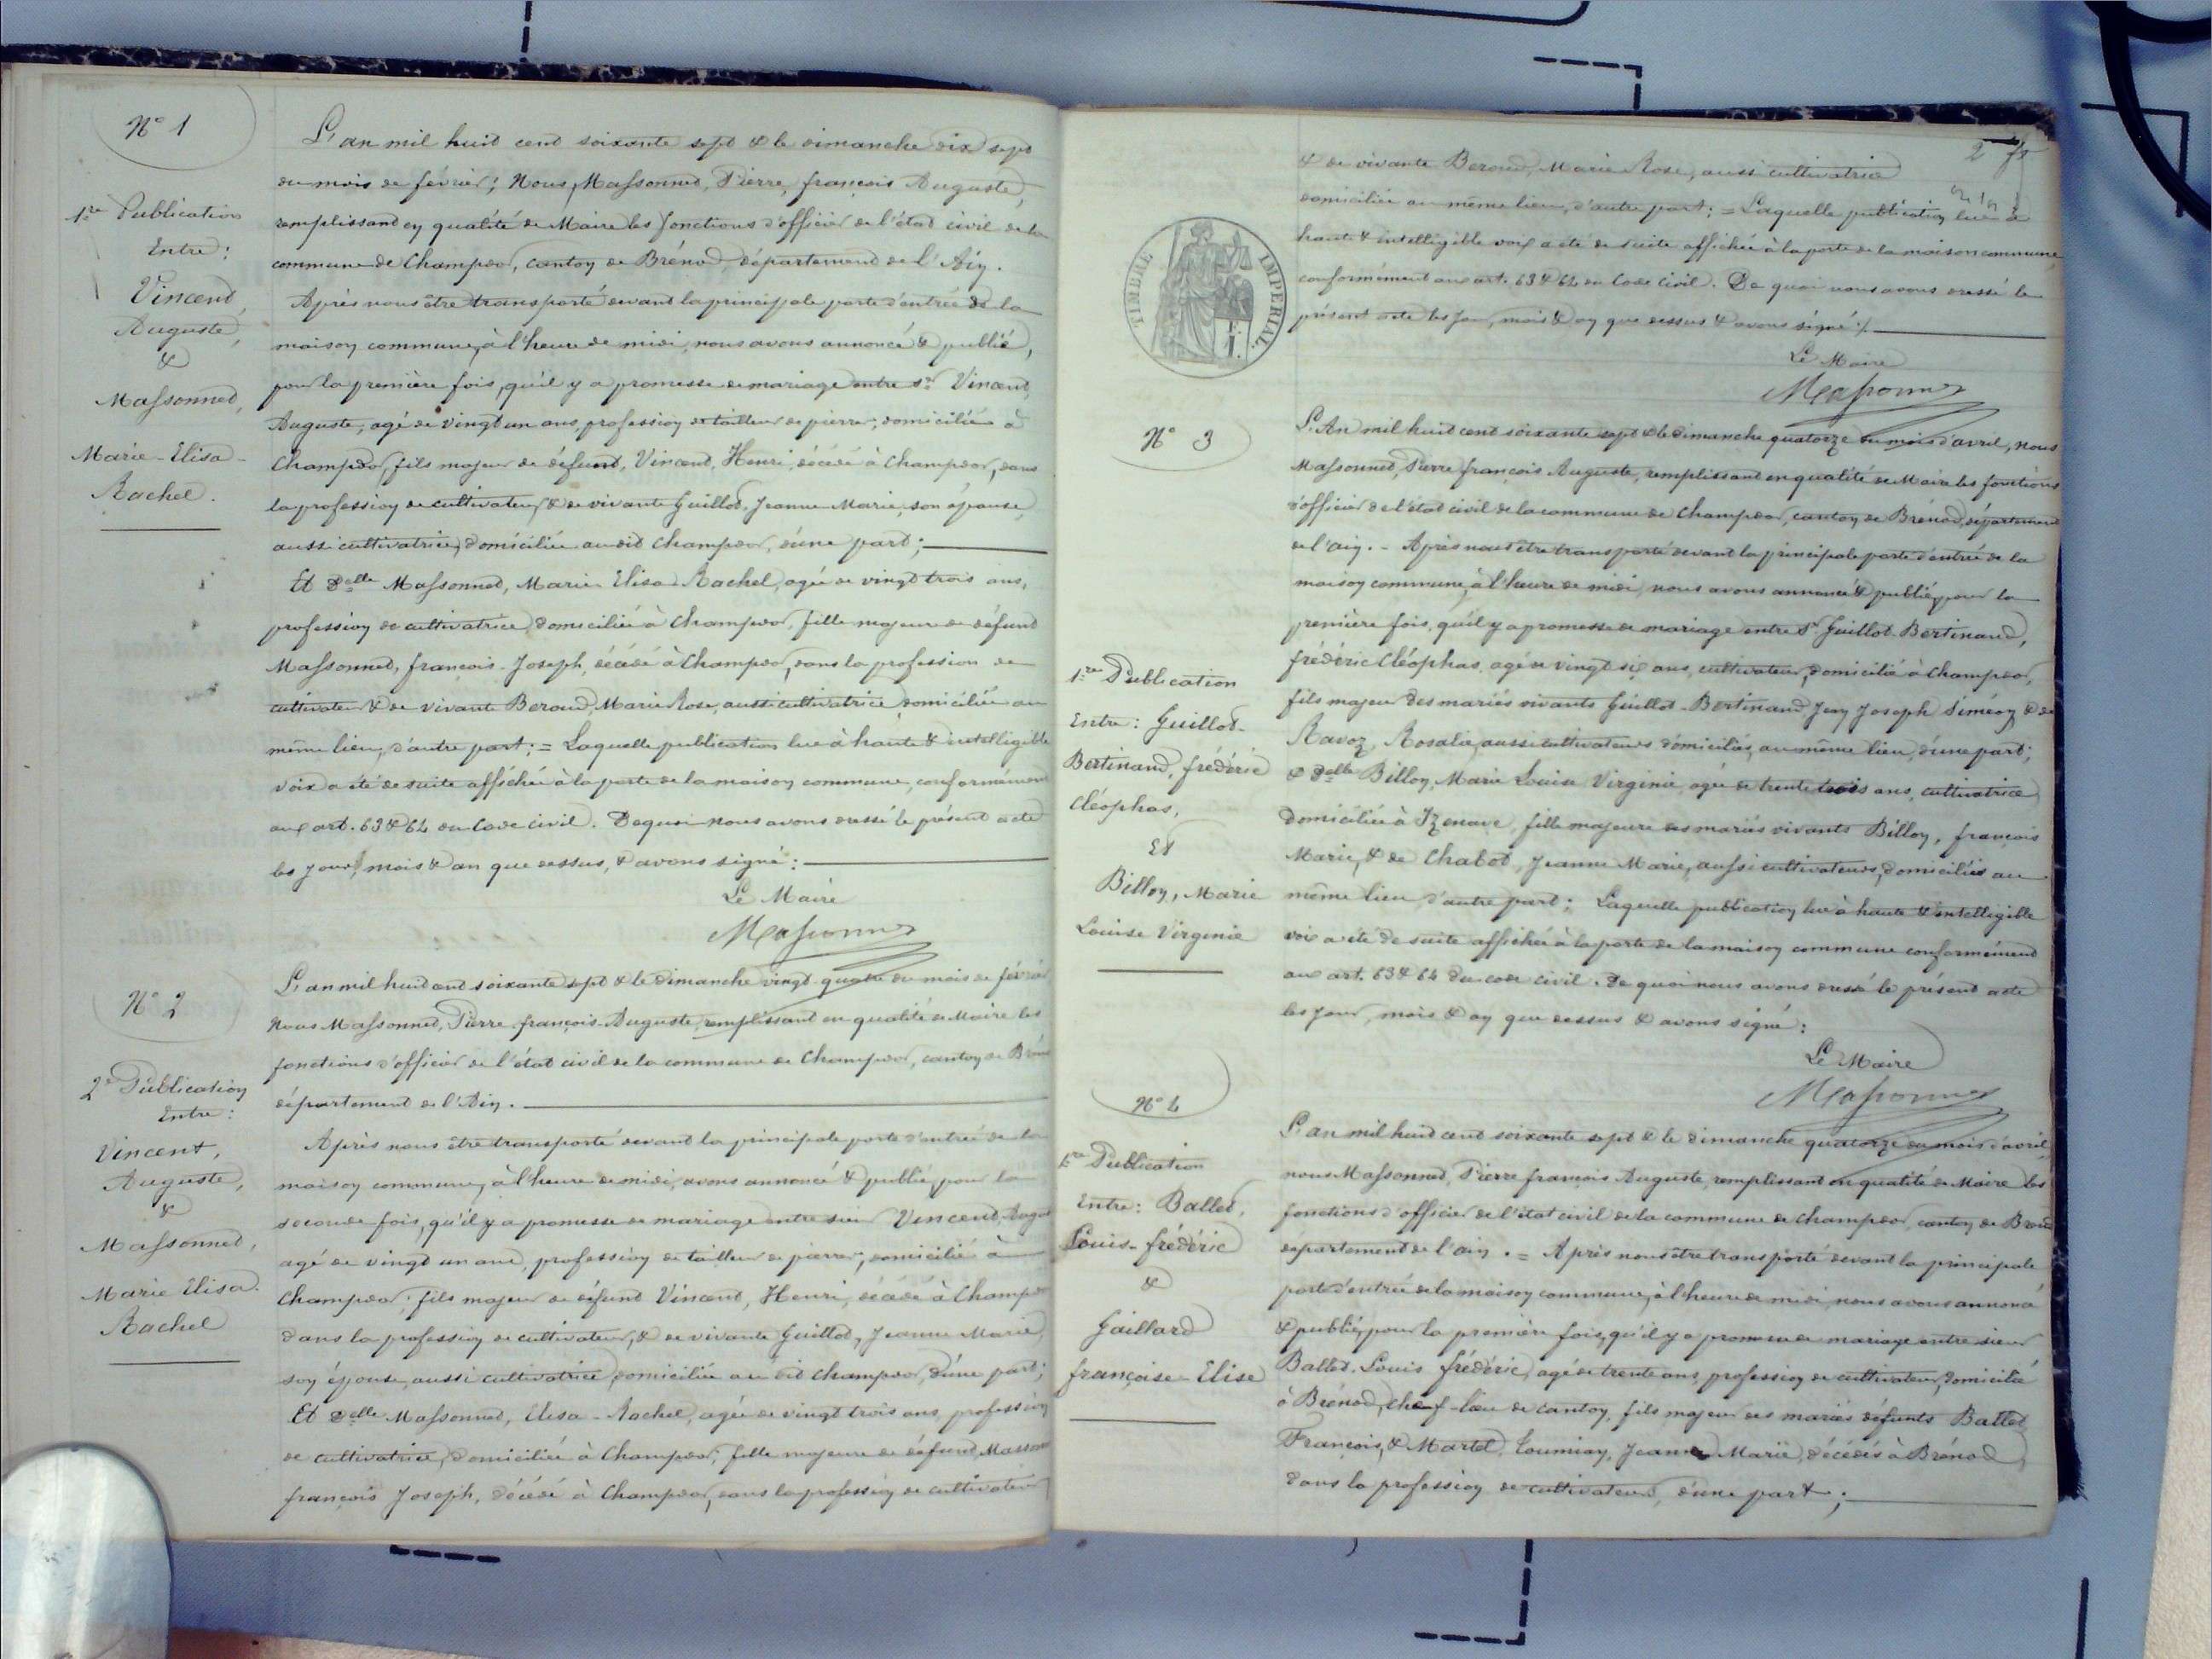 N° 1
1re Publication
Entre :
Vincent,
Auguste,
&
Massonnet,
Marie-Elisa-
Rachel.
L'an mil huit cent soixante sept & le dimanche dix sept
du mois de février; Nous, Massonnet, Pierre, françois Auguste,
remplissant en qualité de Maire les fonctions d'officier de l'état civil de la
commune de Champdor, canton de Brénod, département de l'Ain.
Après nous être transporté devant la principale porte d'entrée de la
maison commune, à l'heure de midi, nous avons annoncé & publié,
pour la première fois, qu'il y a promesse de mariage entre sr Vincent,
Auguste, agé de vingt un ans, profession de tailleur de pierre, domicilié à
Champdor, fils majeur de défunt, Vincent, Henri, décédé à Champdor, dans
la profession de cultivateur, & de vivante Guillot, Jeanne Marie, son épouse,
aussi cultivatrice, domiciliée audit Champdor, d'une part;
Et Delle Massonnet, Marie Elisa Rachel, agée de vingt trois ans,
profession de cultivatrice, domiciliée à Champdor, fille majeure de défunt
Massonnet, françois-Joseph, décédé à Champdor, dans la profession de
cultivateur & de vivante Beroud, Marie Rose, aussi cultivatrice, domiciliée au
même lieu, d'autre part; = Laquelle publication lue à haute & intelligible
voix a été de suite affichée à la porte de la maison commune, conformément
aux art. 63 & 64 du Code civil. De quoi nous avons dressé le présent acte
les jour, mois & an que dessus, & avons signé :
Le Maire
Massonnet
N° 2
2e Publication
Entre :
Vincent,
Auguste,
&
Massonnet,
Marie Elisa.
Rachel
L'an mil huit cent soixante sept & le dimanche vingt-quatre du mois de février
Nous Massonnet, Pierre françois-Auguste, remplissant en qualité de Maire les
fonctions d'officier de l'état civil de la commune de Champdor, canton de Brénod
département de l'Ain.
Après nous être transporté devant la principale porte d'entrée de la
maison commune, à l'heure de midi, avons annoncé & publié, pour la
seconde fois, qu'il y a promesse de mariage entre sieur Vincent,
agé de vingt un ans, profession de tailleur de pierre, domicilié à
Champdor; fils majeur de défunt Vincent, Henri, décédé à Champdor
dans la profession de cultivateur, & de vivante Guillot, Jeanne Marie,
son épouse, aussi cultivatrice, domiciliée au dit Champdor, d'une part;
Et Delle Massonnet, Elisa-Rachel, agée de vingt trois ans, profession
de cultivatrice, domiciliée à Champdor; fille majeure de défunt Massonnet
françois Joseph, décédé à Champdor, dans la profession de cultivateur
2
& de vivante Beroud, Marie Rose, aussi cultivatrice
domiciliée au même lieu, d'autre part; = Laquelle publication lue à
haute & intelligible voix a été de suite affichée à la porte de la maison commune,
conformément aux art. 63 & 64 du Code civil. De quoi nous avons dressé le
présent acte les jour, mois & an que dessus & avons signé ./.
Le Maire
Massonnet
TIMBRE IMPERIAL
N° 3
1re Publication
Entre : Guillot-
Bertinand, frédéric
Cléophas,
Et
Billon, Marie
Louise Virginie
L'An mil huit cent soixante sept & le dimanche quatorze du mois d'avril, nous
Massonnet, Pierre françois Auguste, remplissant en qualité de Maire les fonctions
d'officier de l'état civil de la commune de Champdor, canton de Brénod, département
de l'ain. - Après nous être transporté devant la principale porte d'entrée de la
maison commune, à l'heure de midi, nous avons annoncé & publié, pour la
première fois, qu'il y a promesse de mariage entre Sr Guillot-Bertinand,
frédéric Cléophas, agé de vingt six ans, cultivateur, domicilié à Champdor,
fils majeur des mariés vivants Guillot-Bertinand Jean Joseph Siméon & de
Ravoz, Rosalie, aussi cultivateurs domiciliés, au même lieu, d'une part;
& Delle Billon, Marie Louise Virginie, agée de trente trois ans, cultivatrice,
domiciliée à Izenave, fille majeure des mariés vivants Billon, françois
Marie, & de Chabot, Jeanne Marie, aussi cultivateurs, domiciliés au
même lieu d'autre part; Laquelle publication lue à haute & intelligible
voix a été de suite affichée à la porte de la maison commune conformément
aux art. 63 & 64 du code civil. De quoi nous avons dressé le présent acte
les jour, mois & an que dessus & avons signé :
Le Maire
Massonnet
N° 4
1re Publication
Entre : Ballet,
Louis-frédéric
&
Gaillard
françoise-Elise
L'an mil huit cent soixante sept & le dimanche quatorze du mois d'avril,
nous Massonnet, Pierre françois Auguste, remplissant en qualité de Maire les
fonctions d'officier de l'état civil de la commune de Champdor canton de Brénod
département de l'ain. = Après nous être transporté devant la principale
porte d'entrée de la maison commune, à l'heure de midi, nous avons annoncé
& publié, pour la première fois, qu'il y a promesse de mariage entre sieur
Ballet, Louis frédéric, agé de trente ans, profession de cultivateur, domicilié
à Brénod, chef-lieu de canton, fils majeur des mariés défunts Ballet
François, & Martel Tournian, Jeanne Marie, décédés à Brénod,
dans la profession de cultivateurs, d'une part;